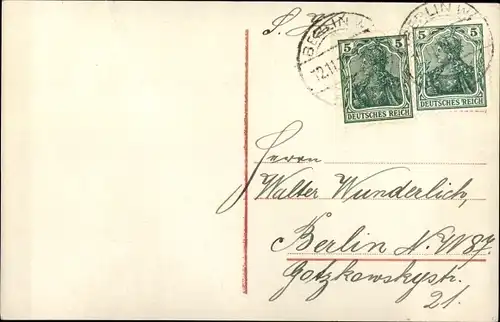 BERLIN W
12.11
BERLIN W
5 5
DEUTSCHES REICH
5 5
DEUTSCHES REICH
Herrn
Walter Wunderlich,
Berlin N.W 87.
Gotzkowskystr.
21.